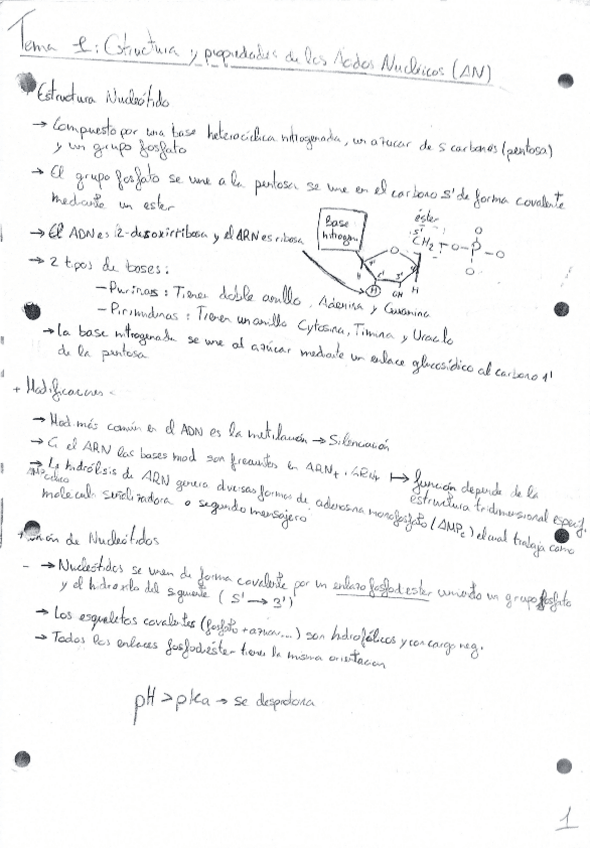 Tema 1: Estructura y propiedades de los Ácidos Nucléicos (AN)
+ Estructura Nucleótido
→ Compuesto por una base heterocíclica nitrogenada, un azucar de 5 carbonos (pentosa)
y un grupo fosfato
→ El grupo fosfato se une a la pentosa se une en el carbono 5' de forma covalente
mediante un ester
→ El ADN es 2-desoxirribosa y el ARN es ribosa
Base
nitrogen
éster
5'
CH2 - O - P - O
O
O
O
H
OH
H
→ 2 tipos de bases:
- Purinas: Tienen doble anillo, Adenina y Guanina
- Pirimidinas: Tienen un anillo Cytosina, Timina y Uracilo
→ La base nitrogenada se une al azúcar mediante un enlace glucosídico al carbono 1'
de la pentosa
+ Modificaciones
→ Mod. más común en el ADN es la metilación → Silenciación
→ En el ARN las bases mod son frecuentes en ARNt ↦ función depende de la
estructura tridimensional específ.
→ La hidrólisis de ARN genera diversas formas de adenosina monofosfato (AMPc) el cual trabaja como
molécula señalizadora o segundo mensajero
AMP cíclico
+ Unión de Nucleótidos
- → Nucleótidos se unen de forma covalente por un enlace fosfodiester uniendo un grupo fosfato
y el hidroxilo del siguiente (5' → 3')
→ Los esqueletos covalentes (fosfato + azucar...) son hidrofílicos y con carga neg.
→ Todos los enlaces fosfodiéster tienen la misma orientación
pH > pKa → se desprotona
1